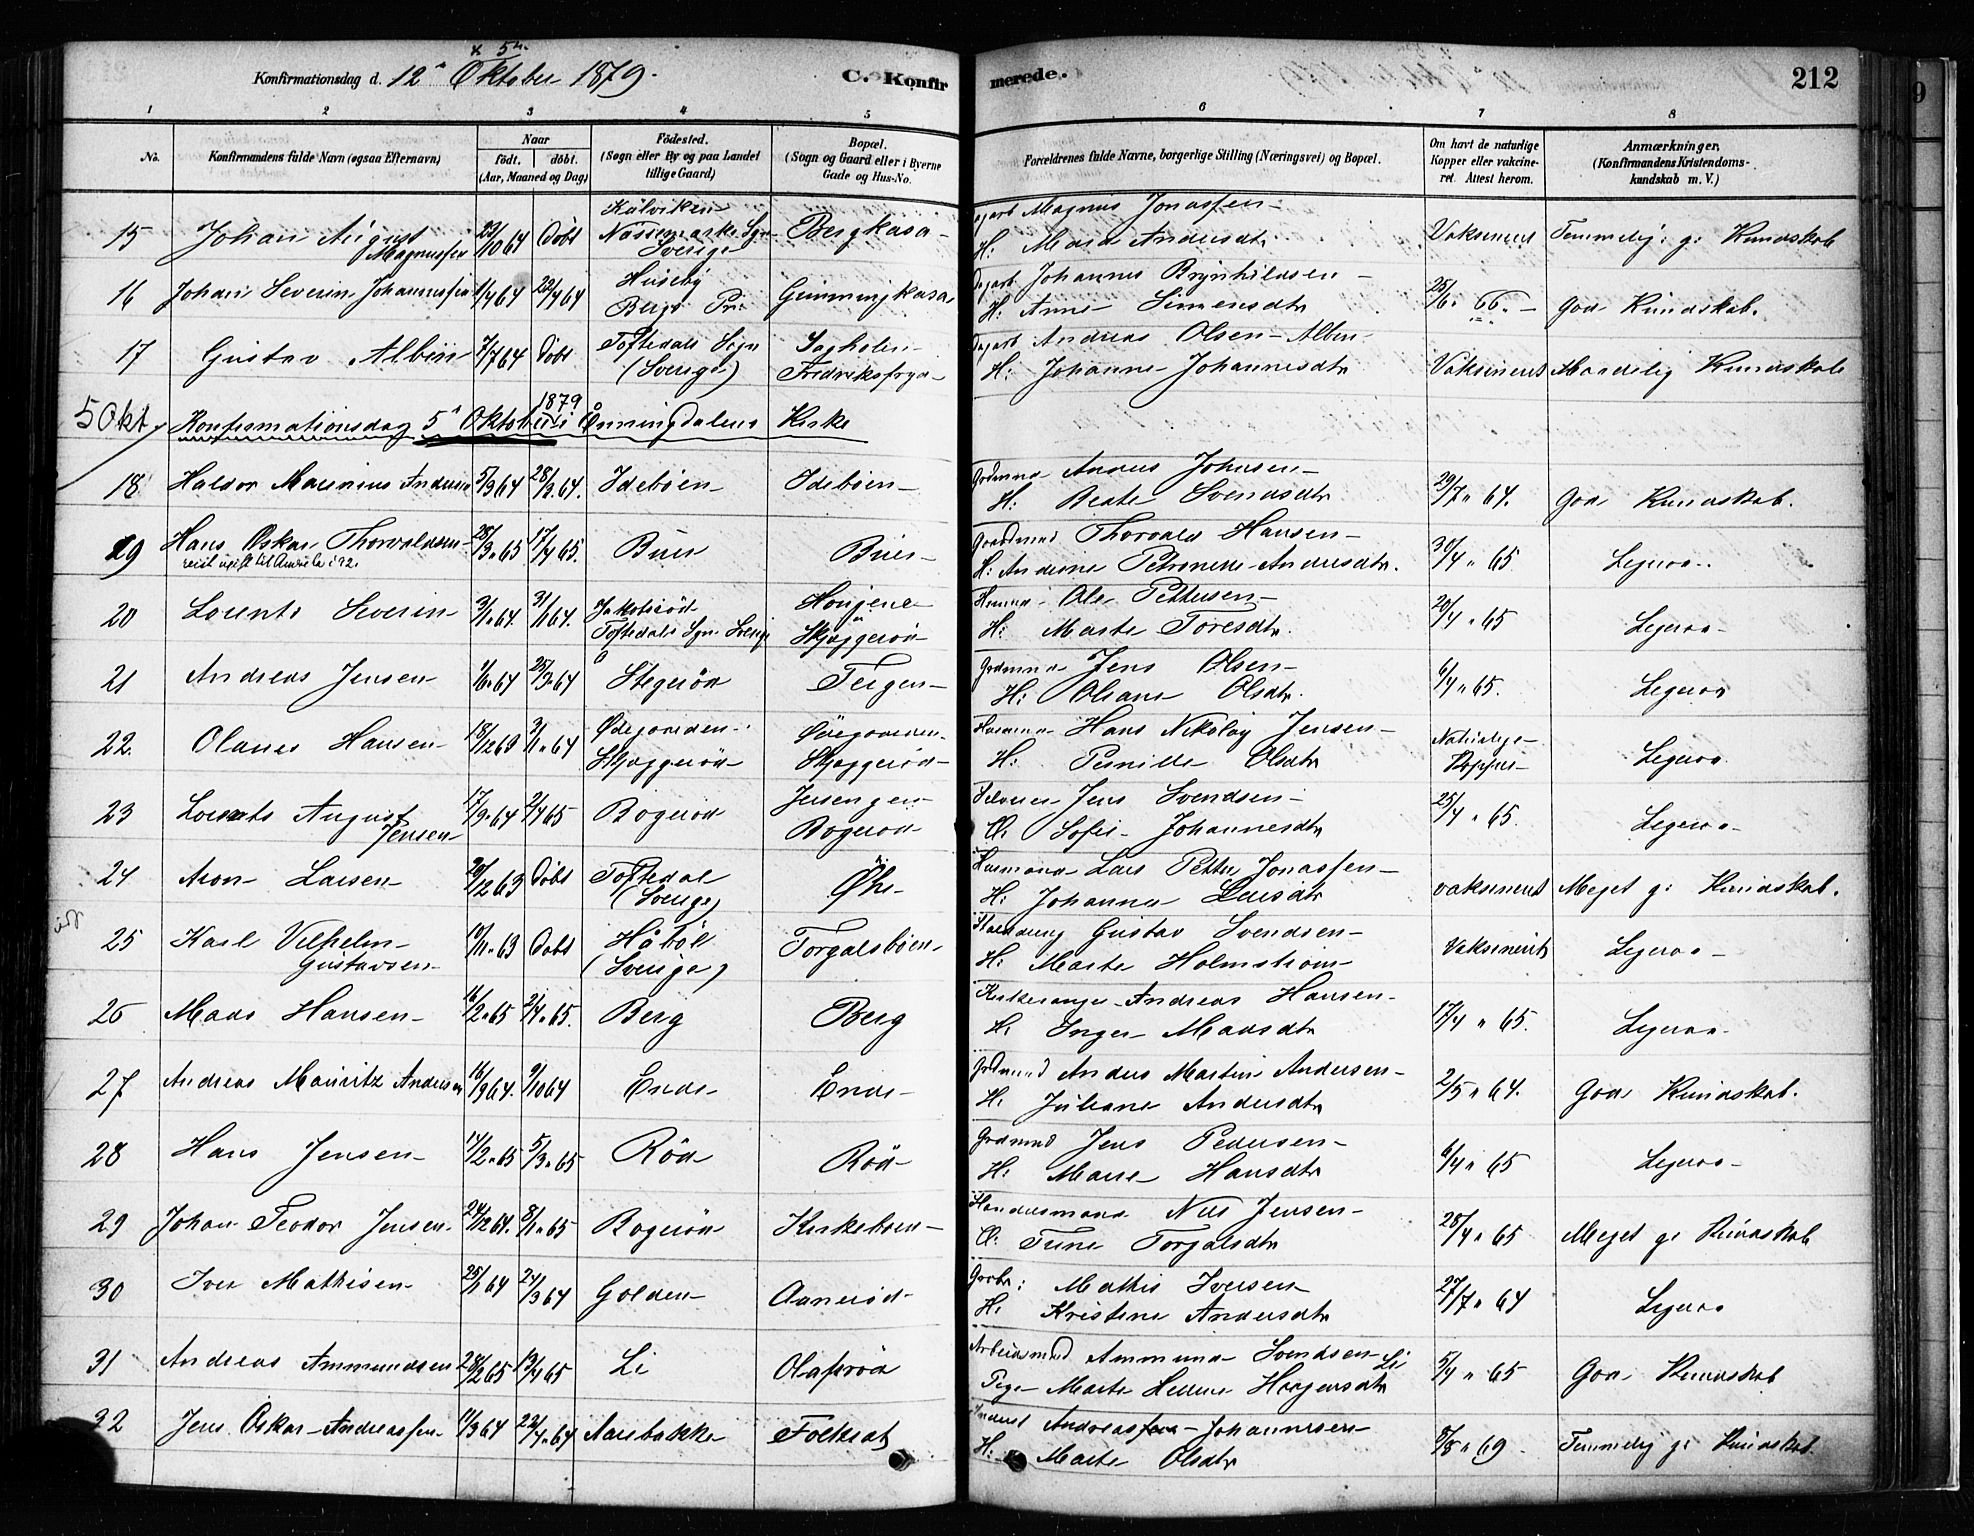 x 5te
Konfirmationsdag d. 12te Oktober 1879.
C. Konfirmerede.
212
1 2 3 4 5 6 7 8
No. Konfirmandens fulde Navn (ogsaa Efternavn) Naar födt. döbt. (Aar, Maaned og Dag) Födested. (Sogn eller By og paa Landet tillige Gaard) Bopæl. (Sogn og Gaard eller i Byerne Gade og Hus-No. Forældrenes fulde Navne, borgerlige Stilling (Næringsvei) og Bopæl. Om havt de naturlige Kopper eller vakcineret. Attest herom. Anmærkninger. (Konfirmandens Kristendomskundskab m. V.)
15 Johan August Magnussen 22/10 64 Döbt Sverige Bergkasa Magnus Jonassen
H: Maria Andersdtr Vaksineret Temmelig g: Kundskab
16 Johan Severin Johannessen 1/4 64 22/4 64 Huseby Bergs Pr: Johannes Brynhildsen
H: Anne Simensdtr 25/6 66 God Kundskab.
17 Gustav Albin 7/7 64 Döbt Töftedals Sogn (Sverige) Fredriksfryd Andreas Olsen Albin
H: Johanne Johannesdtr Vaksineret Maadelig Kundskab
5 Okt. Konfirmationsdag 5te Oktober 1879 i Enningdalens Kirke
18 Haldor Maurinius Andersen 5/3 64 28/3 64. Idebøen Idebøen Gdmnd Anders Johnsen
H: Beate Svendsdtr 29/7 64. God Kundskab.
19 Hans Oskar Thorvaldsen 28/3 65 17/4 65. Buer Buer Gaardmnd Thorvald Hansen
H: Andrine Petronelle Andersdtr. 30/4 65 Ligesaa
20 Lorents Severin 3/1 64. 31/1 64. Töftedals Sgn Sverige Skjøggeröd Husmnd Ole Pettersen
H: Marte Toresdtr. 20/4 65 Ligesaa
21 Andreas Jensen 1/6 64 25/3 64 Stegeröd Teigen Grdmnd Jens Olsen
H: Oleane Olsdtr. 6/4 65. Ligesaa
22. Olaves Hansen 18/12 63 3/1 64 Ødegaarden Skjøggeröd Ødegaarden Skjøggeröd Husmnd Hans Nikolay Jensen
H: Pernille Olsdtr Naturlige Kopper Ligesaa
23 Lorents August Jensen 17/9 64 2/4 65 Bogeröd Jensengen Bogeröd Selveier Jens Svendsen
Q: Sofie Johannesdtr 25/4 65. Ligesaa
24 Aron Larsen 20/12 63 Döbt Töftedal (Sverige) Öhr Husmand Lars Petter Jonassen
H: Johanna Larsdtr vaksineret Meget g: Kundskab.
25 Karl Vilhelm Gustavsen 19/11 63 Döbt Håböl (Sverige) Torgalsbøen Gustav Svendsen
H: Marte Holmström Vaksineret Ligesaa
26 Mads Hansen 16/2 65 2/4 65. Berg Berg Kirkesanger Andreas Hansen
H: Inger Madsdtr 17/4 65. Ligesaa
27 Andreas Mauritz Andersen 16/9 64. 9/10 64 Ende Ende Grdmnd Anders Martin Andersen
H: Juliane Andersdtr 2/5 64. God Kundskab.
28 Hans Jensen 14/2 65 5/3 65 Röd Röd Grdmnd Jens Pedersen
H: Marie Hansdtr 6/4 65 Ligesaa
29 Johan Teodor Jensen 24/12 64. 8/1 65 Bogeröd Kirkebøen Handelsmand Nils Jensen
Q: Trine Torgalsdtr 28/4 65 Meget g: Kundskab
30 Iver Mathisen 25/1 64 24/3 64 Golden Aaneröd Grdbr: Mathis Iversen
H: Kristine Andersdtr 27/7 64 Ligesaa
31 Andreas Ammundsen 28/2 65 13/4 65 Li Olafsröd Arbeidsmnd Ammund Svendsen Li
Pige Marte Helene Haagensdtr 5/4 65 God Kundskab
32 Jens Oskar Andreassen 11/3 64 22/4 64 Aarebakke Folkeat Inderst Andreas Johannesen
H: Marte Olsdtr 8/8 69 Temmelig g: Kundskab.